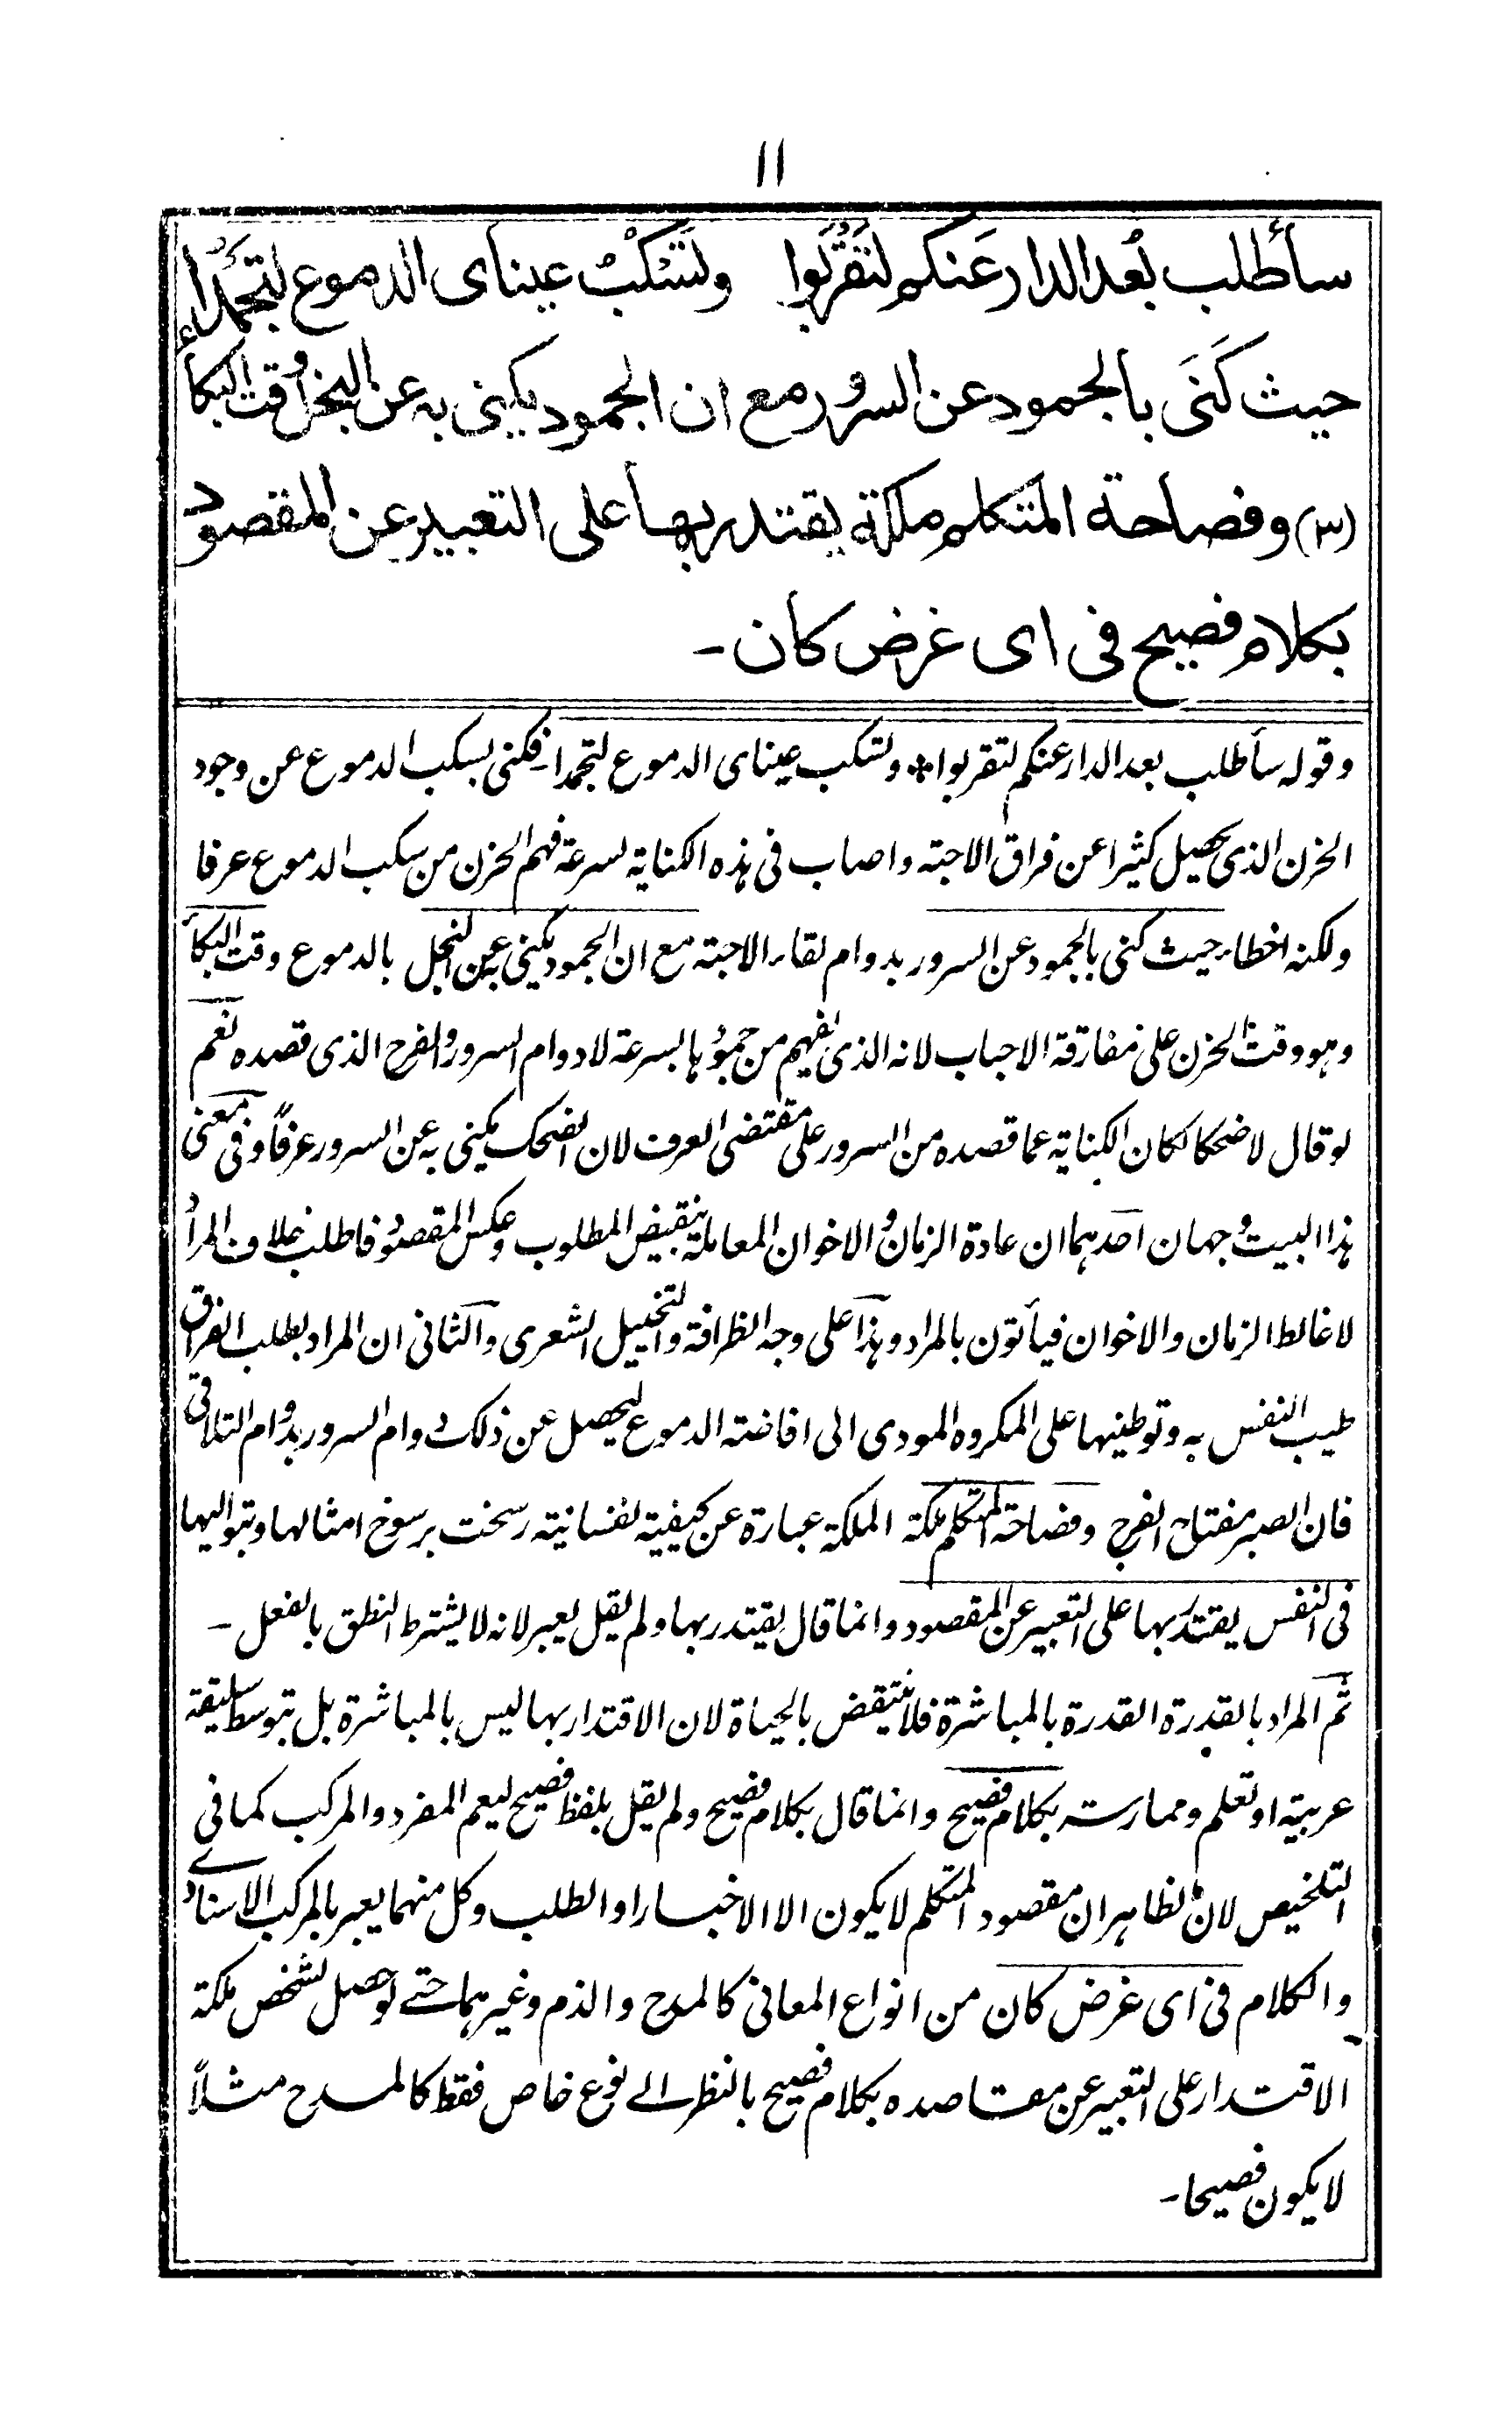 ١١
سأطلب بُعد الدار عَنكم لتَقرُبُوا ولتَسْكُبُ عيناى الدموع لتجمُداء
حيث كَنَى بالجمود عن السرور مع ان الجمود يكنى به عن البخل وقت البكأ
(٣) وفصاحة المتكلم ملكة يقتدر بها على التعبير عن المقصود
بكلام فصيح فى اى غرض كان ـ
وقوله سأطلب بعد الدار عنكم لتقربوا * ولتسكب عيناى الدموع لتجمدا ـ فكنى بسكب الدموع عن وجود
الحزن الذى يحصل كثيرا عن فراق الاحبته واصاب فى هذه الكناية لسرعة فهم الحزن من سكب الدموع عرفا
ولكنه اخطاء حيث كنى بالجمود عن السرور بدوام لقاء الاحبته مع ان الجمود يكنى به عن البخل بالدموع وقت البكأ
وهو وقت الحزن على مفارقة الاحباب لانه الذى يفهم من جمودها بسرعة لا دوام السرور والفرح الذى قصده نعم
لو قال لاضحكا لكان الكناية عما قصده من السرور على مقتضى العرف لان الضحك يكنى به عن السرور عرفاً وفى معنى
هذا البيت وجهان احدهما ان عادة الزمان والاخوان المعاملة بنقيض المطلوب وعكس المقصود فاطلب خلاف المراد
لاغالط الزمان والاخوان فيأتون بالمراد وهذا على وجه الظرافة والتخييل الشعرى والثانى ان المراد بطلب الفراق
طيب النفس به وتوطينها على المكروه المودى الى افاضة الدموع ليحصل عن ذلك دوام السرور بدوام التلاقى
فان الصبر مفتاح الفرج وفصاحة المتكلم ملكة الملكة عبارة عن كيفية نفسانية رسخت برسوخ امثالها وبتواليها
فى النفس يقتدر بها على التعبير عن المقصود وانما قال يقتدر بها ولم يقل يعبر لانه لا يشترط النطق بالفعل ـ
ثم المراد بالقدرة القدرة بالمباشرة فلا ينتقض بالحياة لان الاقتدار بها ليس بالمباشرة بل بتوسط سليقة
عربية او تعلم وممارسته بكلام فصيح وانما قال بكلام فصيح ولم يقل بلفظ فصيح ليعم المفرد والمركب كما فى
التلخيص لان الظاهر ان مقصود المتكلم لا يكون الا الاخبار او الطلب وكل منهما يعبر بالمركب الاسنادے
والكلام فى اى غرض كان من انواع المعانى كالمدح والذم وغيرهما حتے لو حصل لشخص ملكة
الاقتدار على التعبير عن مقاصده بكلام فصيح بالنظر الے نوع خاص فقط كالمدح مثلاً
لا يكون فصيحا ـ